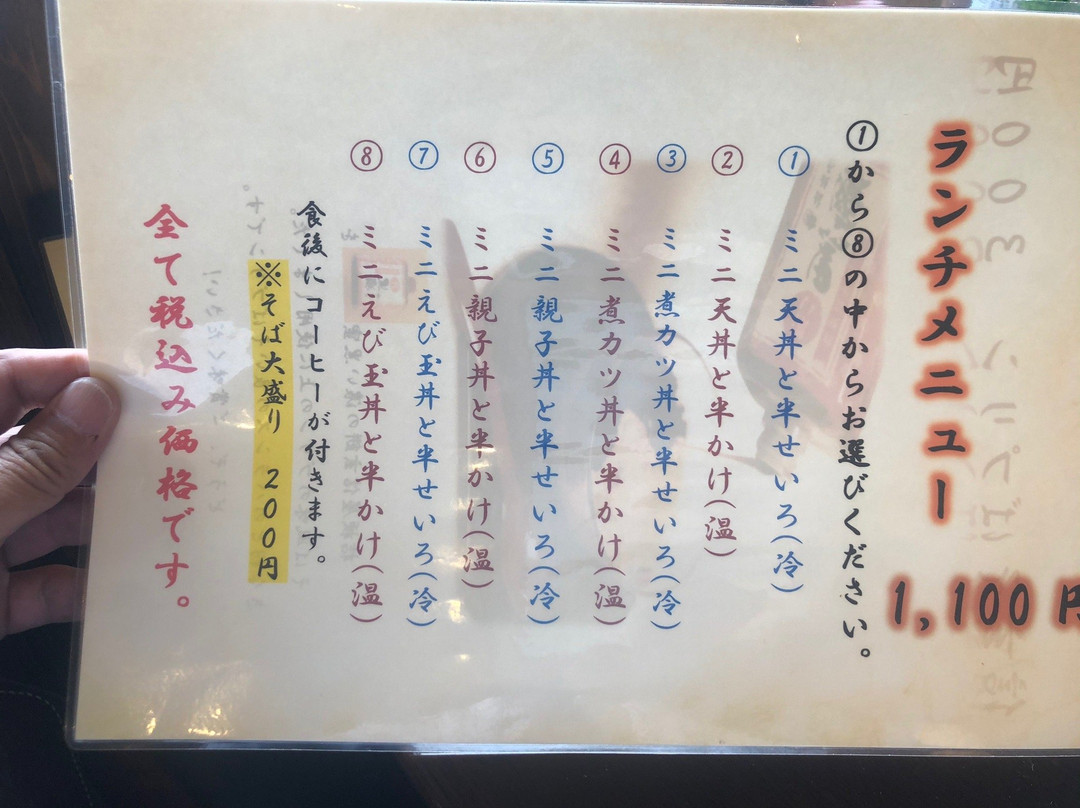 ランチメニュー
1,100円
①から⑧の中からお選びください。
① ミニ天丼と半せいろ(冷)
② ミニ天丼と半かけ(温)
③ ミニ煮カツ丼と半せいろ(冷)
④ ミニ煮カツ丼と半かけ(温)
⑤ ミニ親子丼と半せいろ(冷)
⑥ ミニ親子丼と半かけ(温)
⑦ ミニえび玉丼と半せいろ(冷)
⑧ ミニえび玉丼と半かけ(温)
食後にコーヒーが付きます。
※そば大盛り 200円
全て税込み価格です。